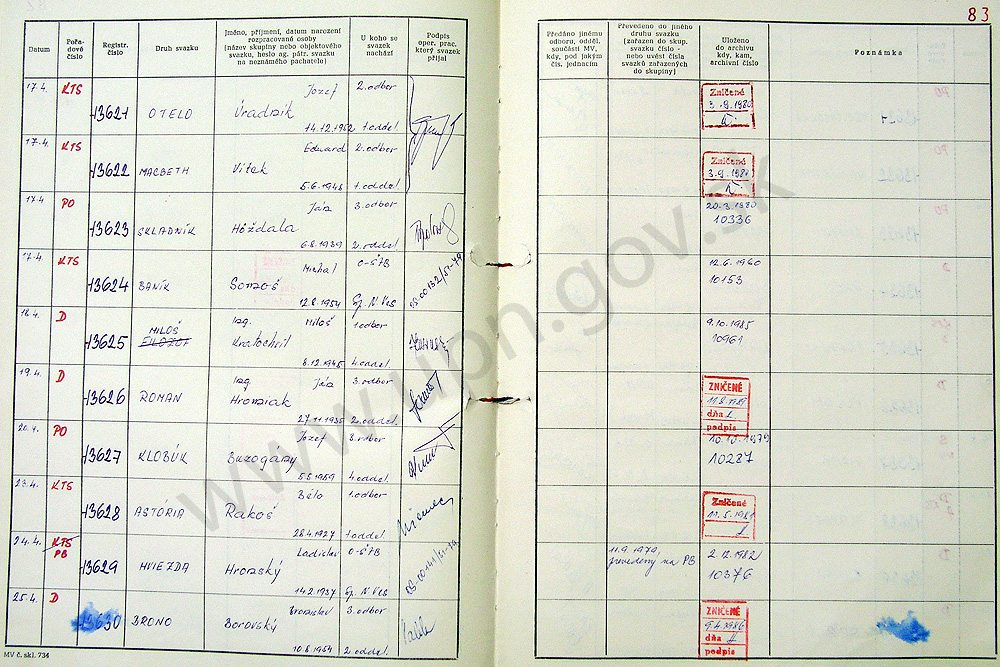 82
Datum
Pořadové číslo
Registr. číslo
Druh svazku
Jméno, příjmení, datum narození rozpracované osoby (název skupiny nebo objektového svazku, heslo ag. pátr. svazku na neznámého pachatele)
U koho se svazek nachází
Podpis oper. prac. který svazek přijal
17.4. KTS 13621 OTELO Jozef Úradník 14.12.1952 2. odbor 1. oddel.
17.4. KTS 13622 MACBETH Eduard Vitek 5.6.1948 2. odbor 1. oddel.
17.4 PO 13623 SKLADNÍK Ján Hóždala 6.8.1939 3. odbor 2. oddel
17.4. KTS 13624 BANÍK Michal 12.8.1954 O-ŠTB Sp. N Ves 03-00132/51-79
18.4. D 13625 MILOŠ Ing. Miloš Kratochvil 8.12.1945 1. odbor 4. oddel.
19.4. D 13626 ROMAN Ing. Ján Hromiak 27.11.1935 3. odbor 2. oddel.
20.4. PO 13627 KLOBÚK Jozef Buzogany 5.5.1959 3. odbor 4. oddel.
23.4. KTS 13628 ASTÓRIA Bélo Rakoš 28.4.1927 1. odbor 1. oddel
24.4. KTS PB 13629 HVIEZDA Ladislav Hromský 14.2.1937 O-ŠTB Sp. N Ves 03-00141/51-79
25.4. D 13630 BRONO Bronislav Borovský 10.8.1954 3. odbor 2. oddel
MV č. skl. 734
83
Předáno jinému odboru, odděl. součásti MV, kdy, pod jakým čís. jednacím
Převedeno do jiného druhu svazku (zařazen do skup. svazku číslo - nebo uvést čísla svazků zařazených do skupiny)
Uloženo do archivu kdy, kam, archivní číslo
Poznámka
Zničené
3.9.1980
Zničené
3.9.1981
20-3.1980
10336
12.6.1980
10153
9.10.1985
10961
ZNIČENÉ
dňa
podpis
10.10.1979
10287
Zničené
11.5.1981
11.9.1979, prevedený na PB
2.12.1982
10376
ZNIČENÉ
9.4.1986
dňa
podpis
www.upn.gov.sk